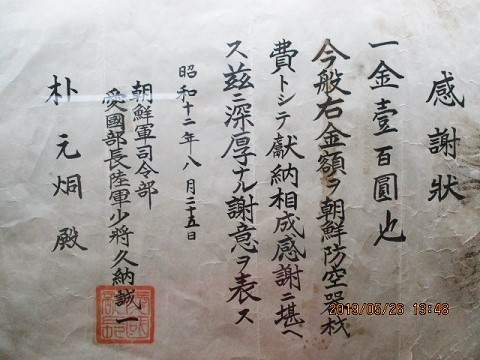 感謝狀
一金壹百圓也
今般右金額ヲ朝鮮防空器材
費トシテ獻納相成感謝ニ堪ヘ
ス茲ニ深厚ナル謝意ヲ表ス
昭和十二年八月二十五日
朝鮮軍司令部
愛國部長陸軍少將久納誠一
朴元炯殿
2013/05/26 13:48